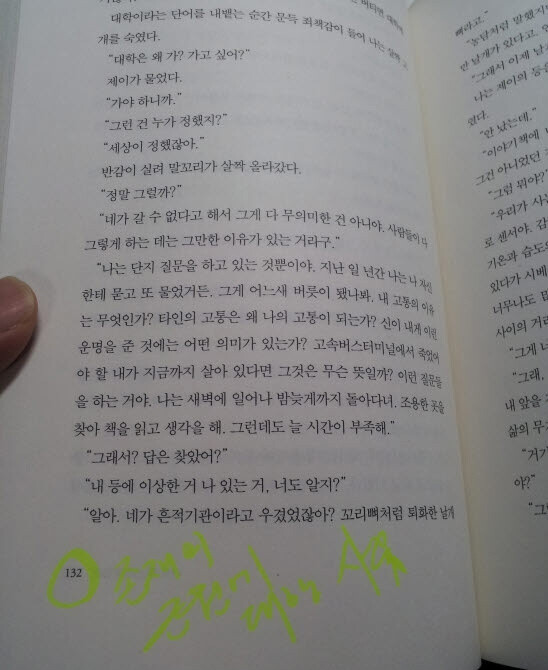 대학이라는 단어를 내뱉는 순간 문득 죄책감이 들어 나는 살짝 고
개를 숙였다.
“대학은 왜 가? 가고 싶어?”
제이가 물었다.
“가야 하니까.”
“그런 건 누가 정했지?”
“세상이 정했잖아.”
반감이 실려 말꼬리가 살짝 올라갔다.
“정말 그럴까?”
“네가 갈 수 없다고 해서 그게 다 무의미한 건 아니야. 사람들이 다
그렇게 하는 데는 그만한 이유가 있는 거라구.”
“나는 단지 질문을 하고 있는 것뿐이야. 지난 일 년간 나는 나 자신
한테 묻고 또 물었거든. 그게 어느새 버릇이 됐나봐. 내 고통의 이유
는 무엇인가? 타인의 고통은 왜 나의 고통이 되는가? 신이 내게 이런
운명을 준 것에는 어떤 의미가 있는가? 고속버스터미널에서 죽었어
야 할 내가 지금까지 살아 있다면 그것은 무슨 뜻일까? 이런 질문들
을 하는 거야. 나는 새벽에 일어나 밤늦게까지 돌아다녀. 조용한 곳을
찾아 책을 읽고 생각을 해. 그런데도 늘 시간이 부족해.”
“그래서? 답은 찾았어?”
“내 등에 이상한 거 나 있는 거, 너도 알지?”
“알아. 네가 흔적기관이라고 우겼었잖아? 꼬리뼈처럼 퇴화한 날개
132
존재의
뼈라고.”
“농담처럼 말했지
안 날개가 있다고.
“그래서 이제 날
나는 제이의 등을
였다.
“안 났는데.”
“이야기책에
그건 아니었던
“그럼 뭐야?”
“우리가 사는
로 센서야. 감
기온과 습도
있다가 시베
너무나도 멀
사이의 거리
“그게 너
“그래,
내 앞을
삶의 무
“거기
야?”
“그